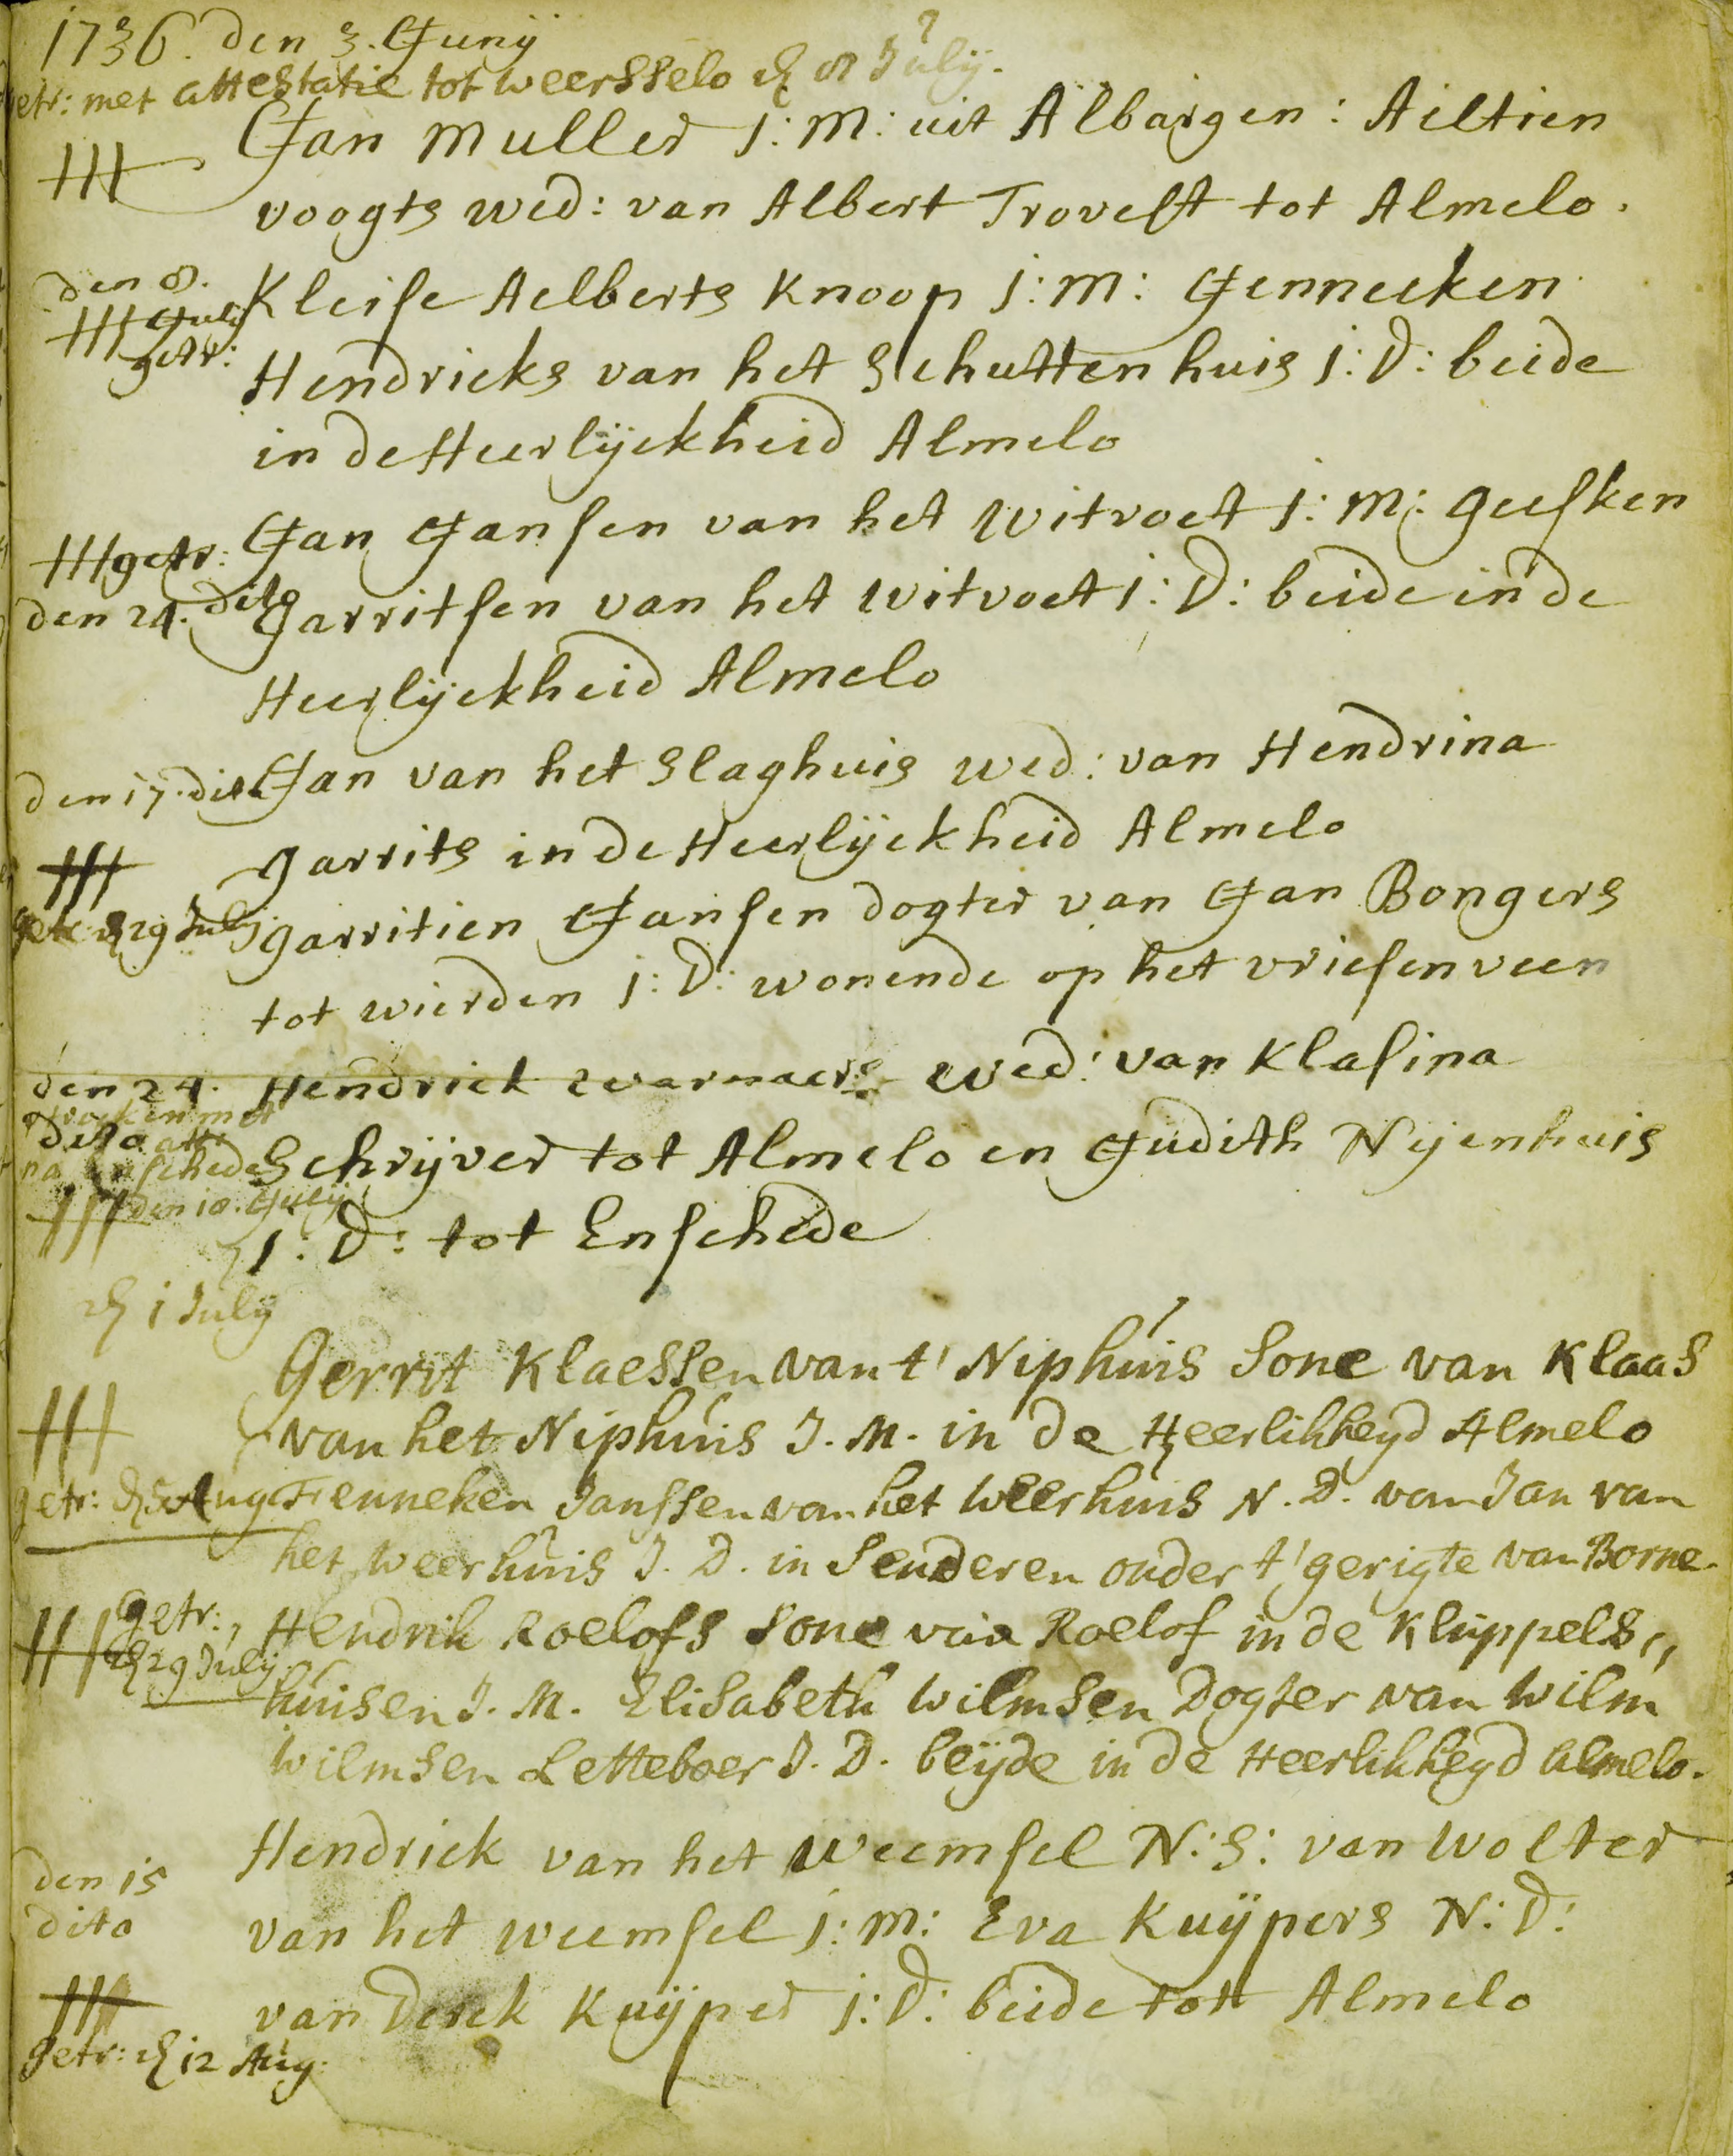 1736. den 3. Junij
getr: met attestatie tot weersselo den 8 July.
Jan Muller j: m: uit Albargen: Ailtien
voogts wed: van Albert Trovest tot Almelo.
den 8.
July
getr:
Kleise Aelberts Knoop j: m: Jenneeken
Hendricks van het Schuttenhuis j: D: beide
in de Heerlijckheid Almelo
getr:
den 24. dito
Jan Jansen van het Witvoet j: m: geesken
garritsen van het Witvoet j: D: beide in de
Heerlijckheid Almelo
den 17. dito
Jan van het Slaghuis wed: van Hendrina
garrits in de Heerlijckheid Almelo
getr: den 29 July
garritien Jansen dogter van Jan Bongers
tot wierden j: D: wonende op het vriesenveen
den 24.
dito
Hendrick warnaers wed: van Klasina
Schrijver tot Almelo en Judith Nijenhuis
met
att:
na Enschede
den 10. July
j: D: tot Enschede
den 1 July
Gerrit Klaessen van t' Niphuis Sone van Klaas
van het Niphuis J. M. in de Heerlikheyd Almelo
getr: den 5 Aug
Fenneken Janssen van het Weerhuis N. D. van Jan van
het weerhuis J. D. in Senderen onder t' gerigte van Borne.
getr:
den 29 July
Hendrik Roelofs Sone van Roelof in de Kluppels,,
huisen J. M. Elisabeth Wilmsen Dogter van Wilm
Wilmsen Letteboer J. D. beyde in de Heerlikheyd Almelo.
den 15
dito
Hendrick van het Weemsel N: S: van Wolter
van het weemsel j: m: Eva Kuijpers N: D:
van Derck Kuijper j: D: beide tot Almelo
getr: den 12 Aug: